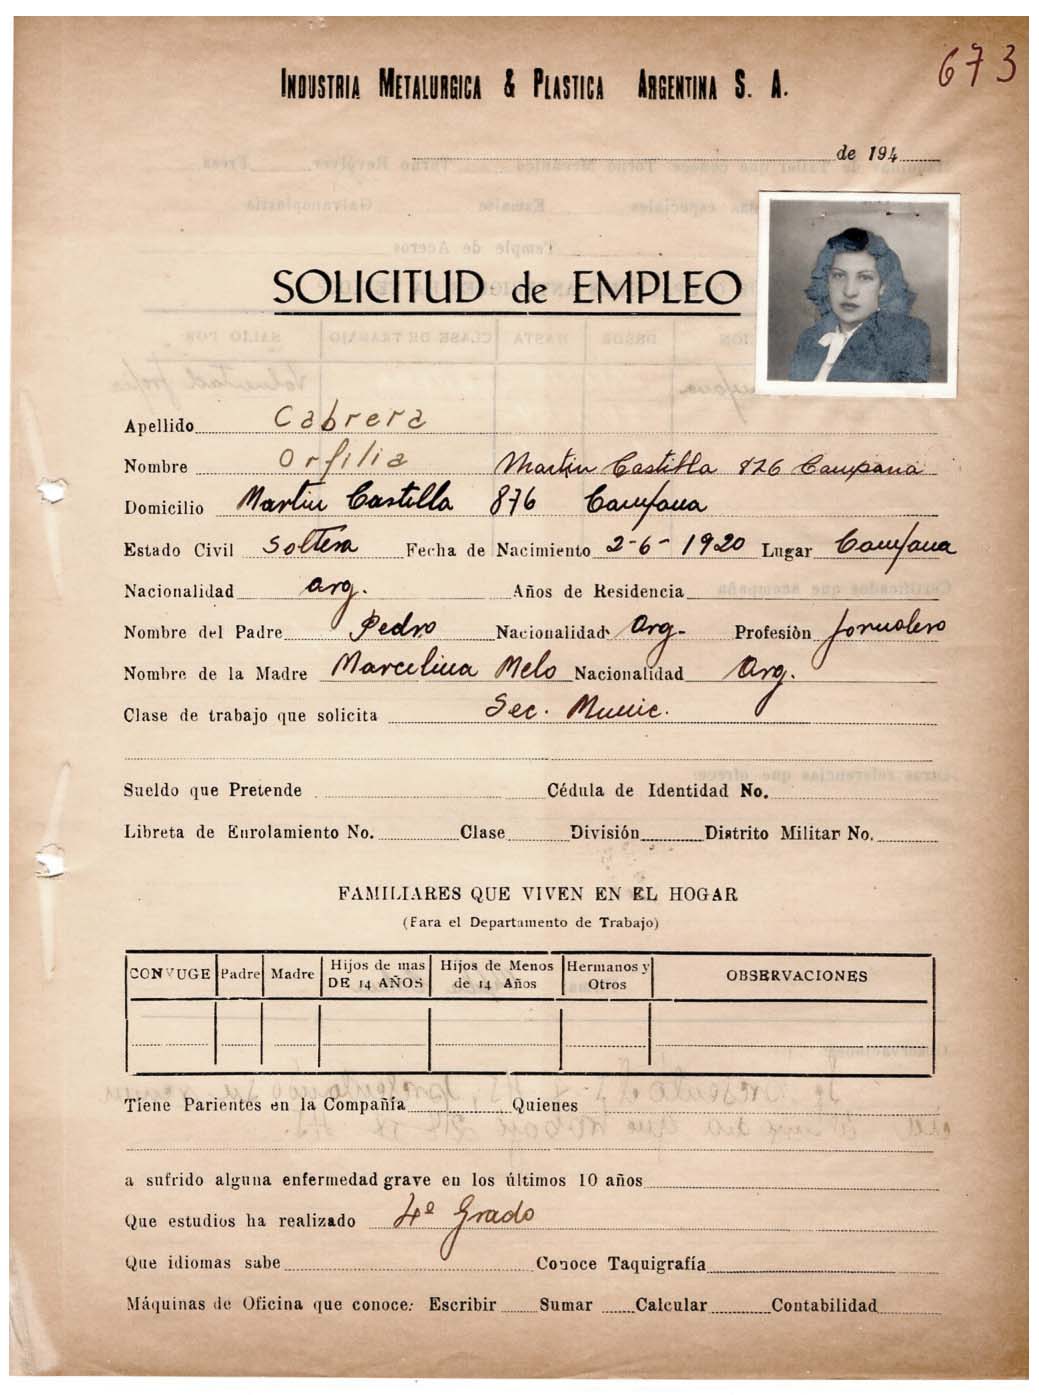 673
INDUSTRIA METALURGICA & PLASTICA ARGENTINA S. A.
de 194
SOLICITUD de EMPLEO
Apellido Cabrera
Nombre Orfilia Martin Castilla 876 Campana
Domicilio Martin Castilla 876 Campana
Estado Civil Soltera Fecha de Nacimiento 2-6-1920 Lugar Campana
Nacionalidad arg. Años de Residencia
Nombre del Padre Pedro Nacionalidad Arg- Profesión Jornalero
Nombre de la Madre Marcelina Melo Nacionalidad Arg.
Clase de trabajo que solicita Sec. Munic.
Sueldo que Pretende Cédula de Identidad No.
Libreta de Enrolamiento No. Clase División Distrito Militar No.
FAMILIARES QUE VIVEN EN EL HOGAR
(Para el Departamento de Trabajo)
CONYUGE Padre Madre Hijos de mas DE 14 AÑOS Hijos de Menos de 14 Años Hermanos y Otros OBSERVACIONES
Tiene Parientes en la Compañía Quienes
a sufrido alguna enfermedad grave en los últimos 10 años
Que estudios ha realizado 4º Grado
Que idiomas sabe Conoce Taquigrafía
Máquinas de Oficina que conoce: Escribir Sumar Calcular Contabilidad